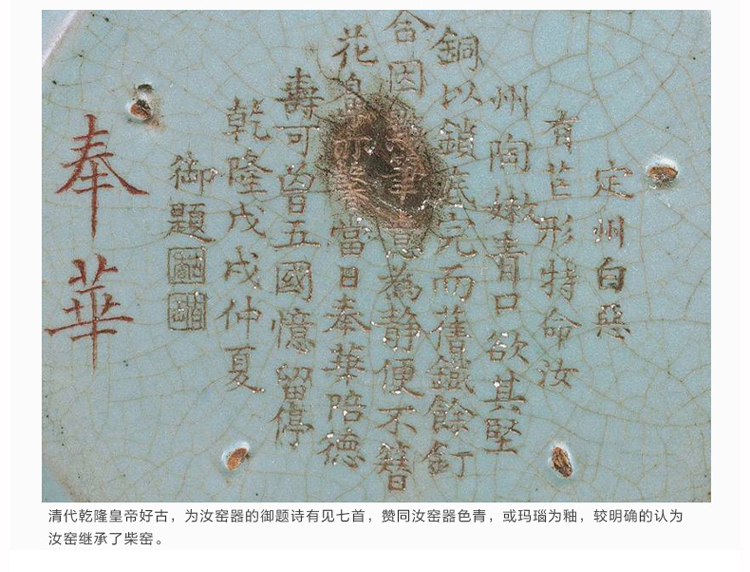 定州白惡
有芒形特命汝
州陶嫩青口欲其堅
銅以鎖底完而舊鐵餘釘
合因筆意為静便不簪
花當日奉華陪德
壽可曾五國憶留停
乾隆戊戌仲夏
御題
奉華
清代乾隆皇帝好古，为汝窑器的御题诗有见七首，赞同汝窑器色青，或玛瑙为釉，较明确的认为
汝窑继承了柴窑。